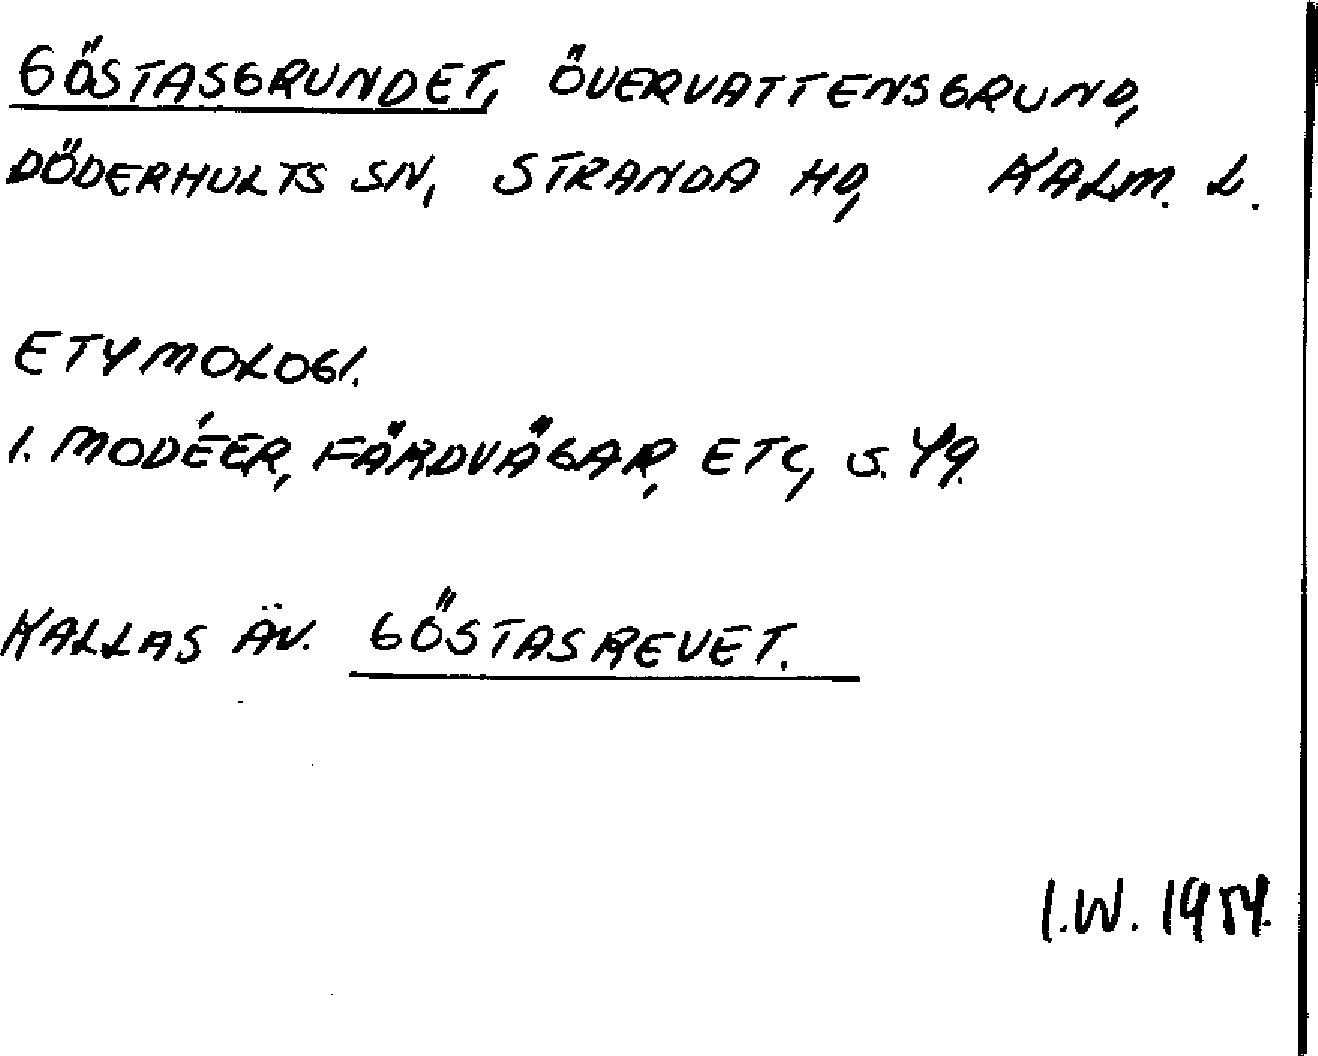 GÖSTASGRUNDET, ÖVERVATTENSGRUND,
DÖDERHULTS SN, STRANDA HD, KALM. L.
ETYMOLOGI.
I. MODÉER, FÄRDVÄGAR, ETC, S. 49.
KALLAS ÄV. GÖSTASREVET.
I.W. 1954.